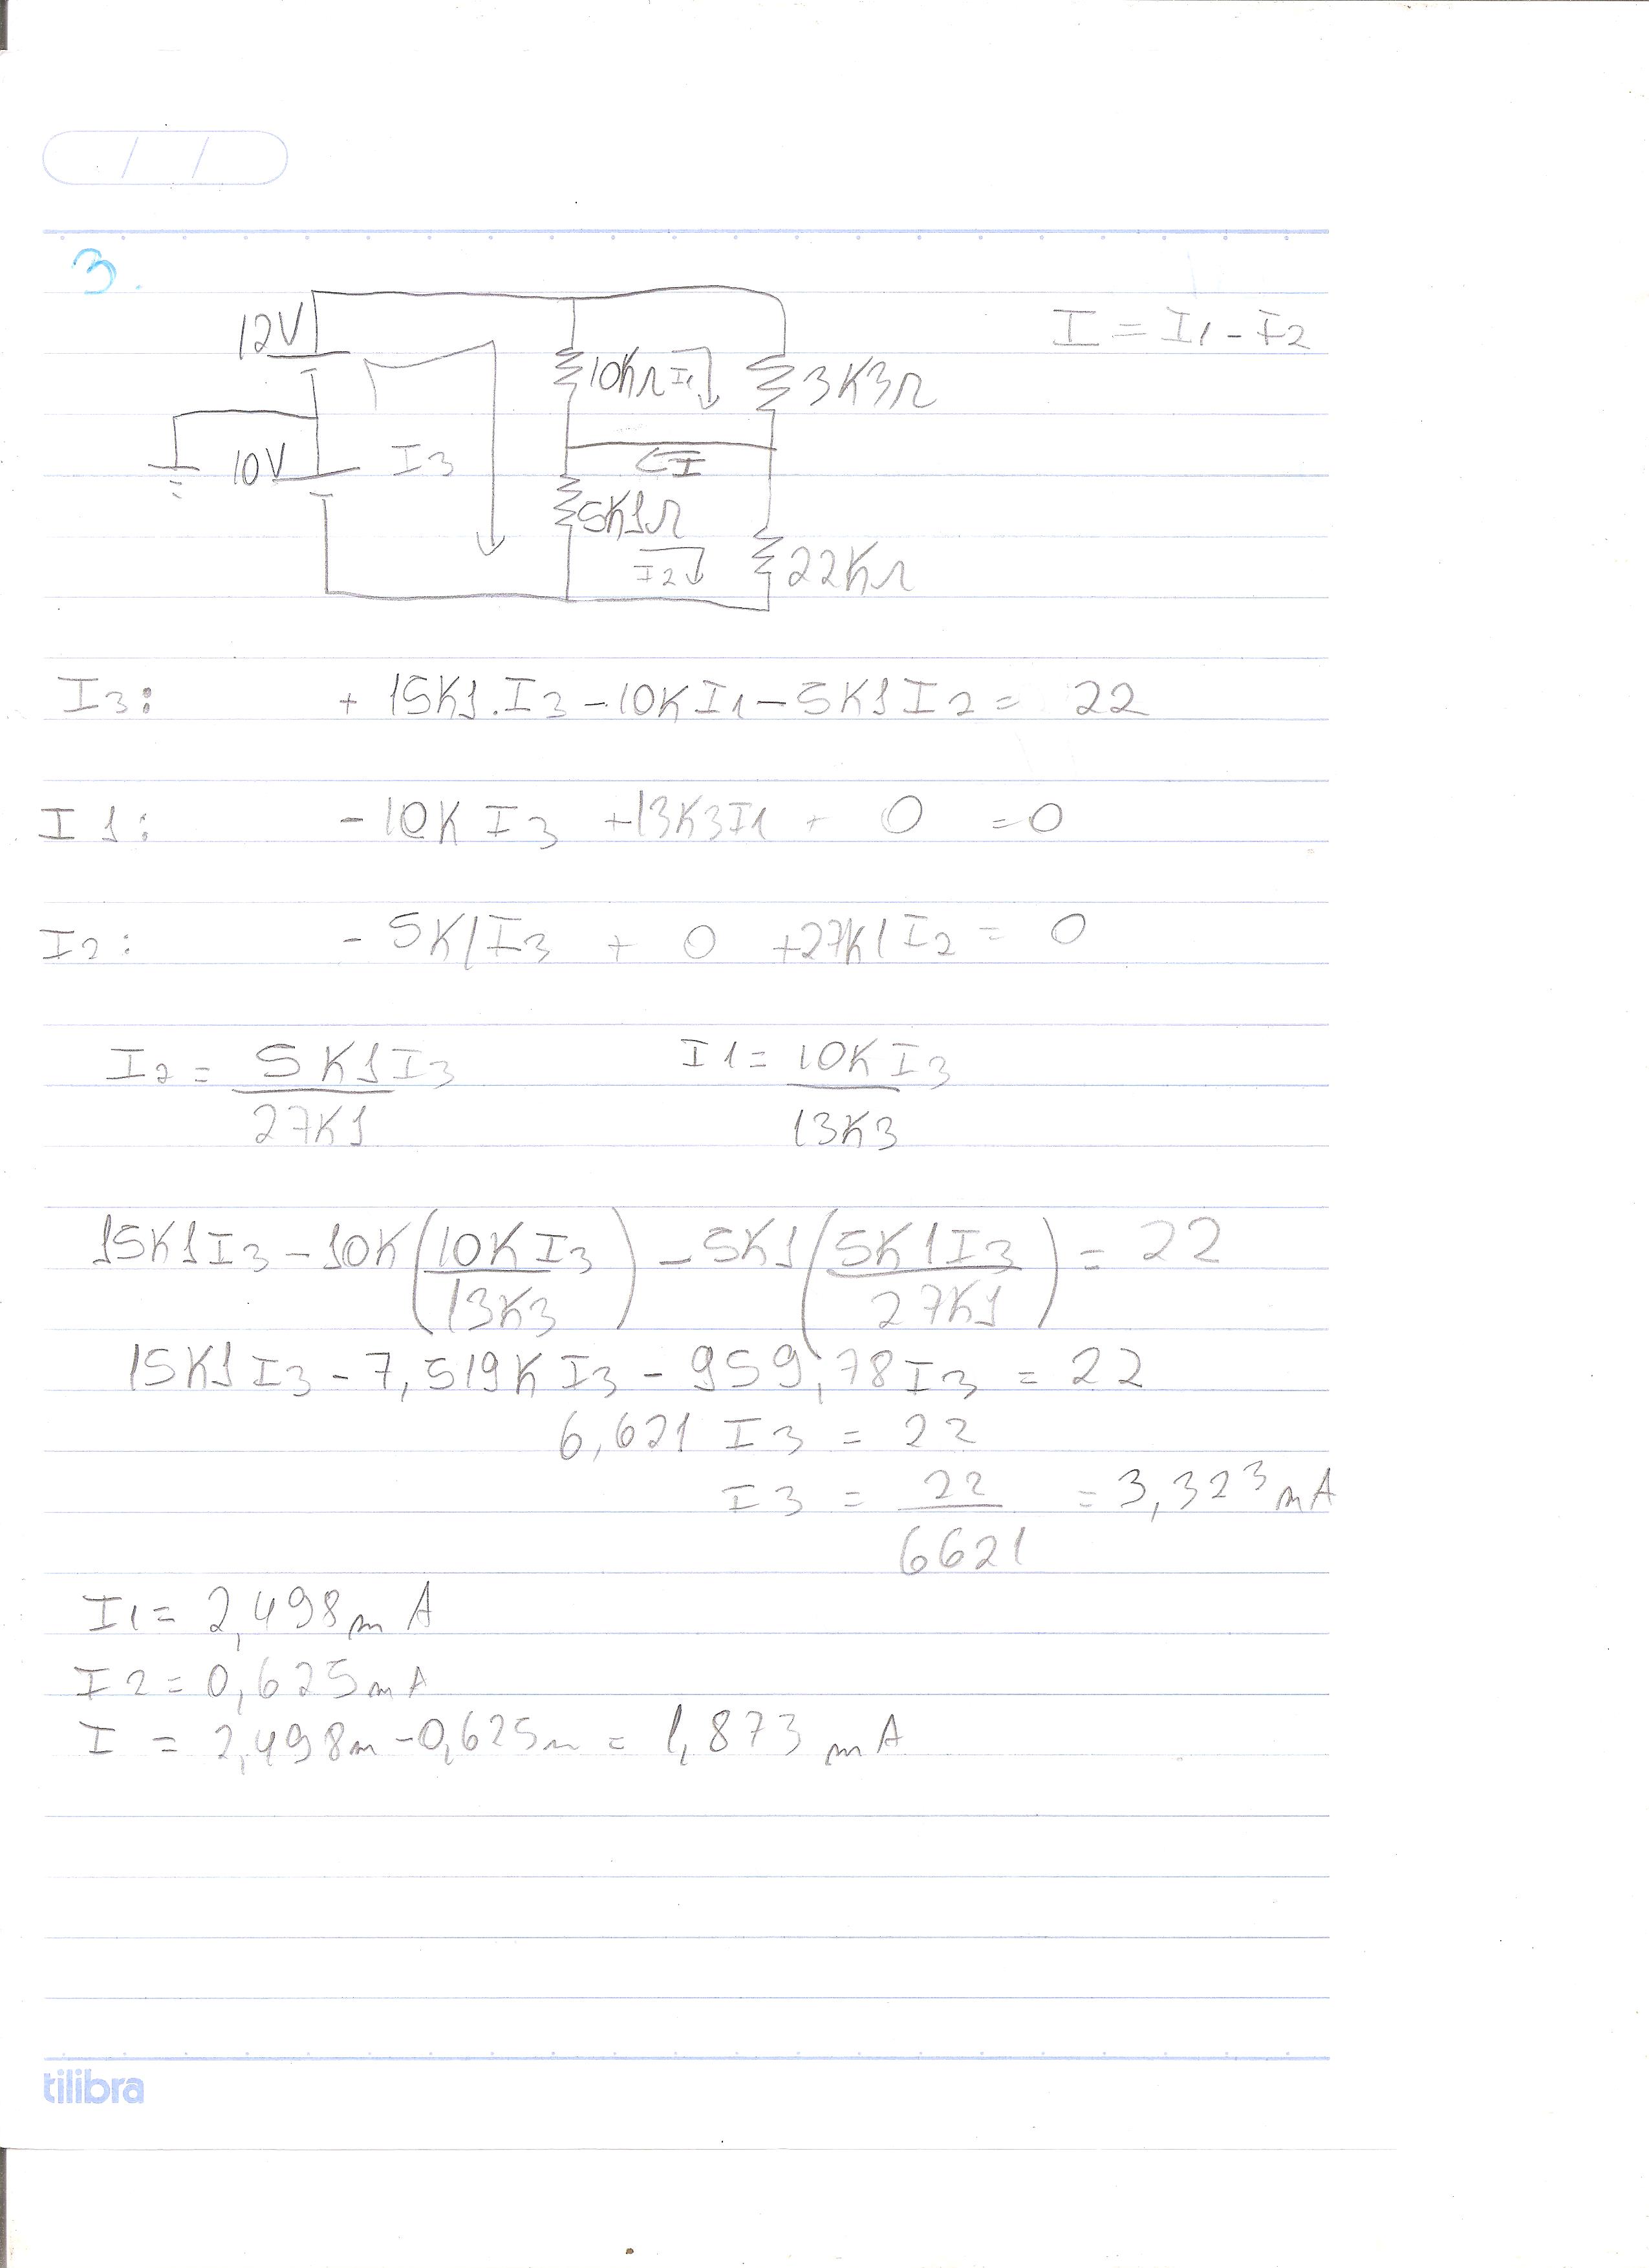 3.
12V
I = I1 - I2
10KΩ I1
3K3Ω
10V
I3
I
5K1Ω
I2
22KΩ
I3: + 15K1.I3 - 10KI1 - 5K1I2 = 22
I1: - 10K I3 + 13K3I1 + 0 = 0
I2: - 5K1I3 + 0 + 27K1I2 = 0
I2 = 5K1I3 / 27K1    I1 = 10K I3 / 13K3
15K1I3 - 10K(10K I3 / 13K3) - 5K1(5K1I3 / 27K1) = 22
15K1I3 - 7,519K I3 - 959,78 I3 = 22
6,621 I3 = 22
I3 = 22 / 6621 = 3,323 mA
I1 = 2,498 mA
I2 = 0,625 mA
I = 2,498m - 0,625m = 1,873 mA
tilibra